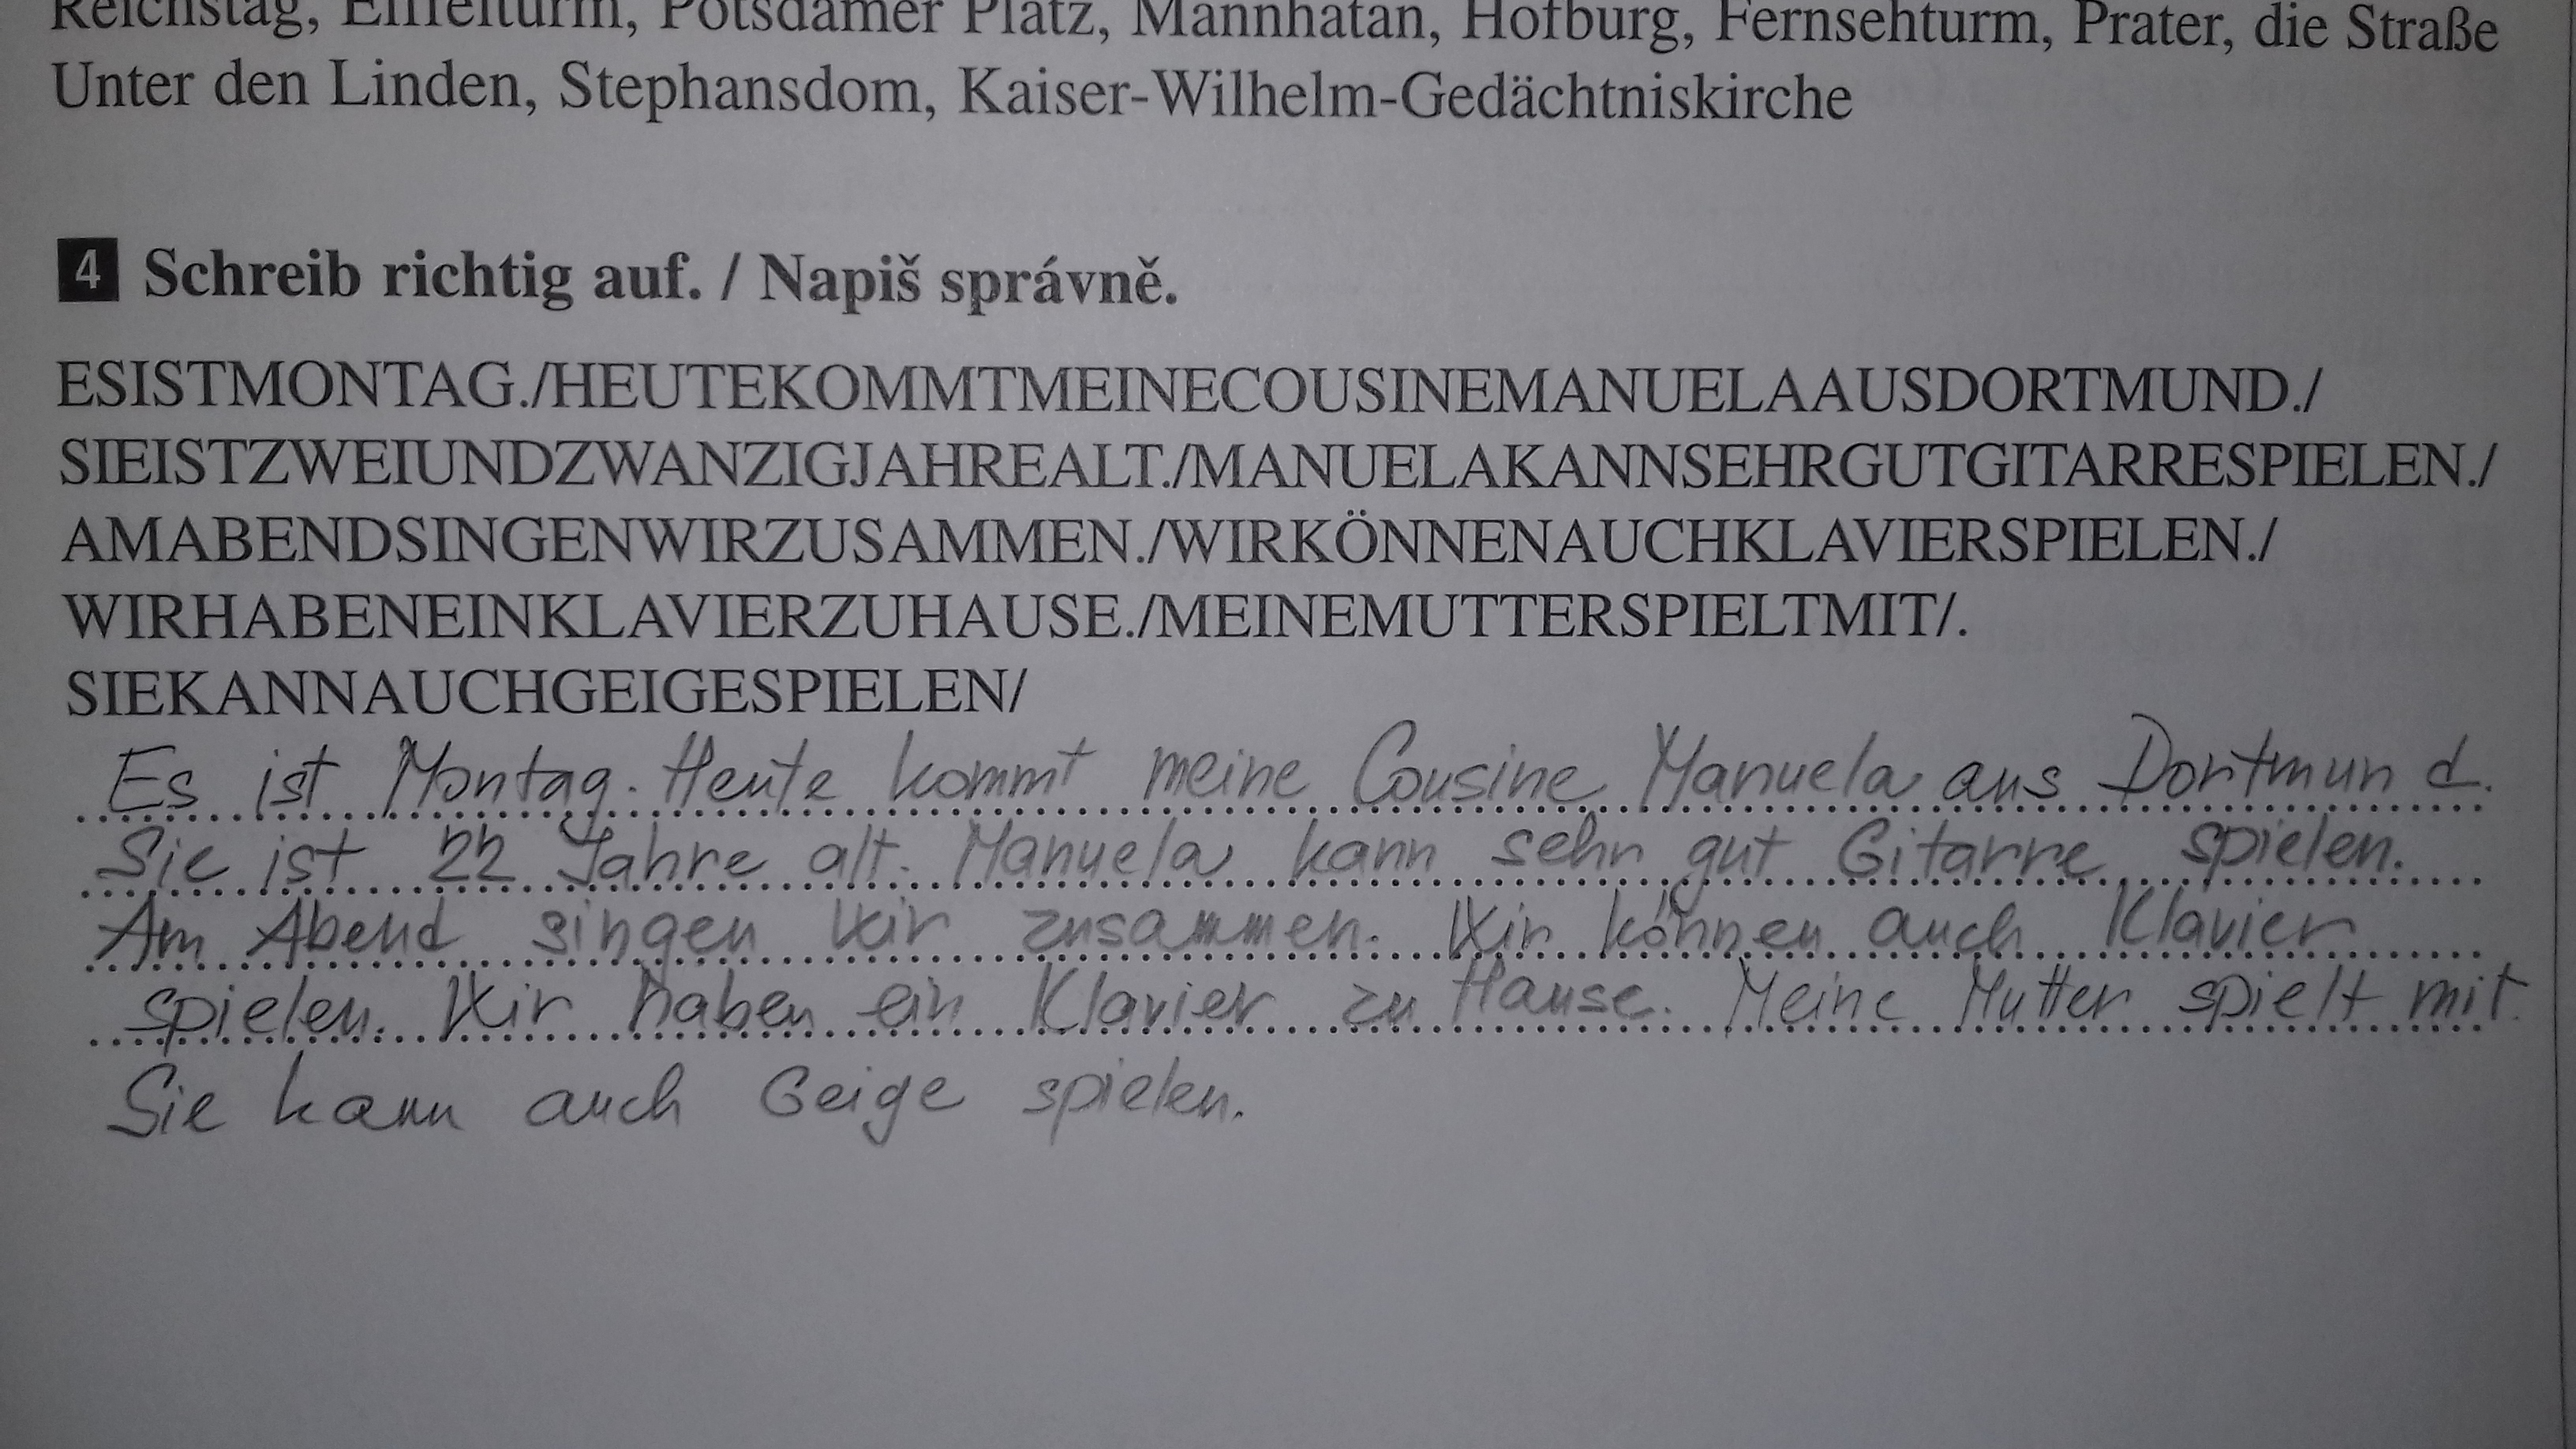 Reichstag, Eiffelturm, Potsdamer Platz, Mannhatan, Hofburg, Fernsehturm, Prater, die Straße
Unter den Linden, Stephansdom, Kaiser-Wilhelm-Gedächtniskirche
4 Schreib richtig auf. / Napiš správně.
ESISTMONTAG./HEUTEKOMMTMEINECOUSINEMANUELAAUSDORTMUND./
SIEISTZWEIUNDZWANZIGJAHREALT./MANUELAKANNSEHRGUTGITARRESPIELEN./
AMABENDSINGENWIRZUSAMMEN./WIRKÖNNENAUCHKLAVIERSPIELEN./
WIRHABENEINKLAVIERZUHAUSE./MEINEMUTTERSPIELTMIT/.
SIEKANNAUCHGEIGESPIELEN/
Es ist Montag. Heute kommt meine Cousine Manuela aus Dortmund.
Sie ist 22 Jahre alt. Manuela kann sehr gut Gitarre spielen.
Am Abend singen wir zusammen. Wir können auch Klavier
spielen. Wir haben ein Klavier zu Hause. Meine Mutter spielt mit.
Sie kann auch Geige spielen.